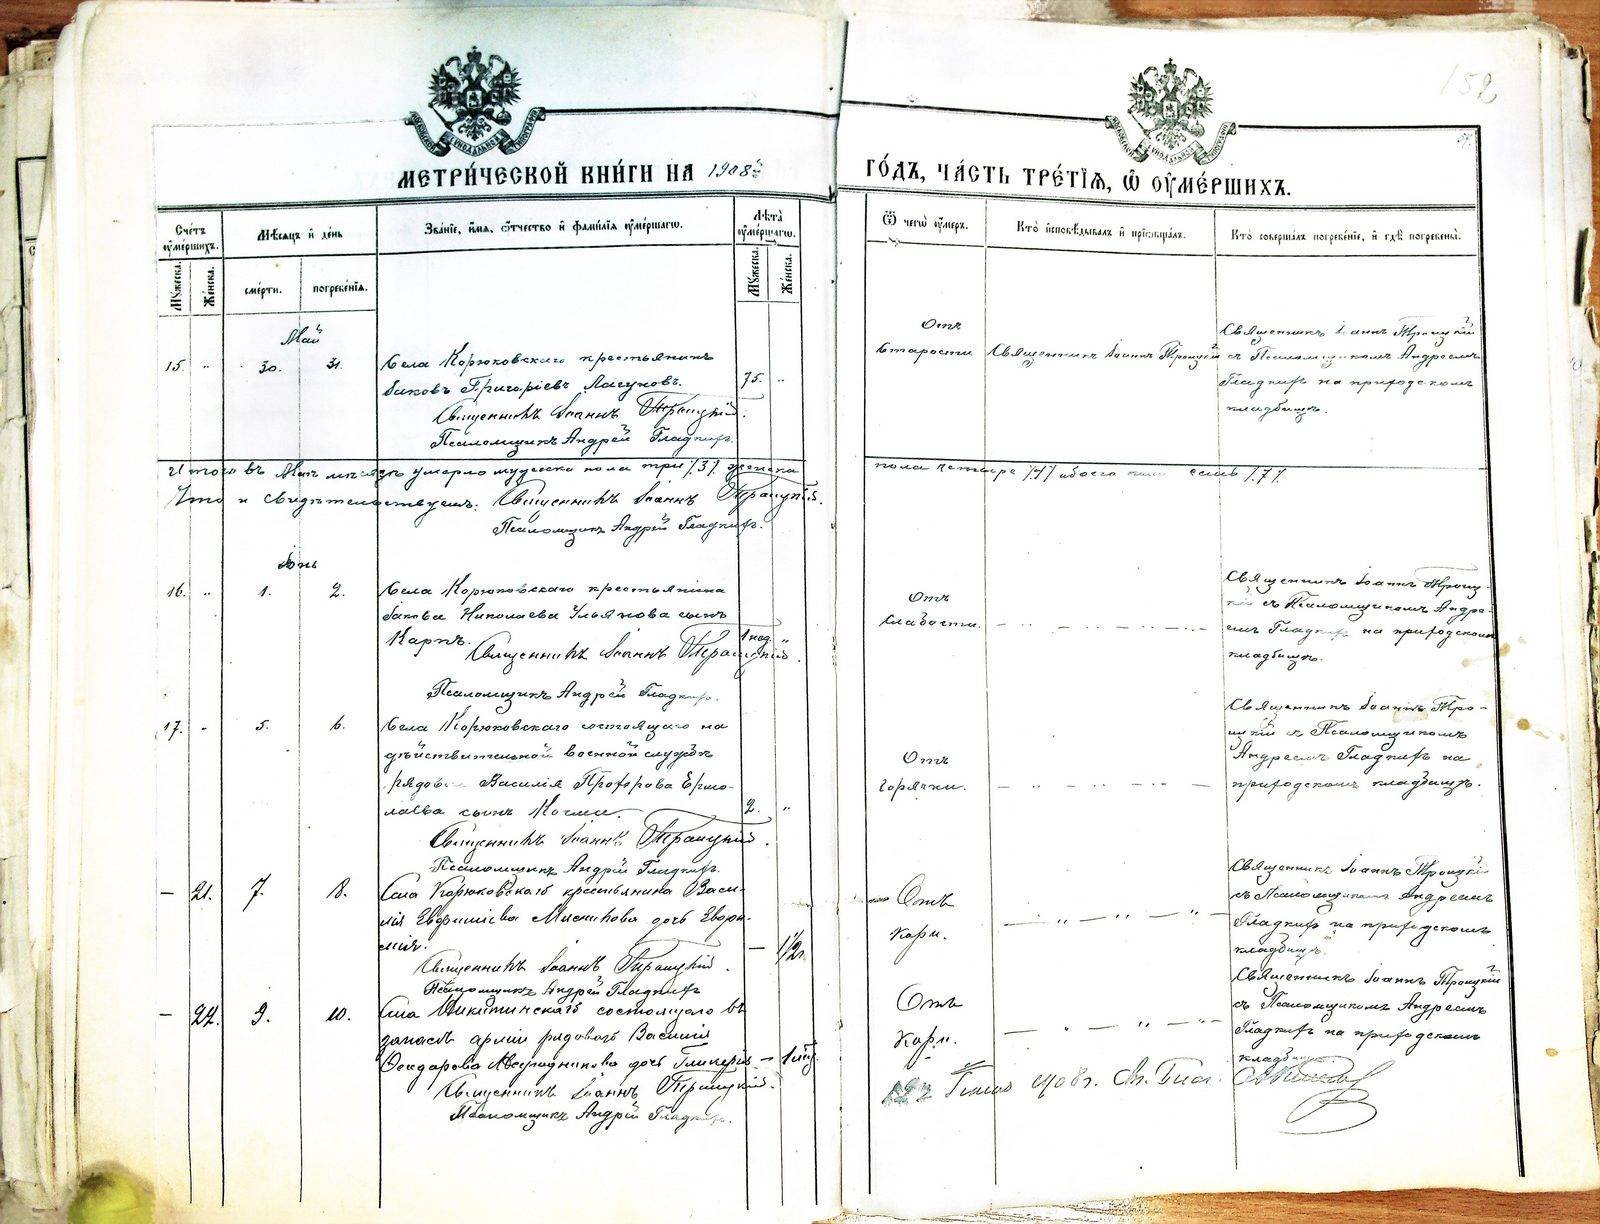 152
МОСКОВСКОЙ СѴНОДАЛЬНОЙ ТИПОГРАФІИ
МОСКОВСКОЙ СѴНОДАЛЬНОЙ ТИПОГРАФІИ
МЕТРИ́ЧЕСКОЙ КНИ́ГИ НА 1908й
ГО́ДЪ, ЧА́СТЬ ТРЕ́ТІѦ, Ѡ̓ ОУ҆МЕ́РШИХЪ.
Сче́тъ оу҆ме́ршихъ.
Мѣ́сяцъ и҆ де́нь
Зва́нїе, и҆́мѧ, ѻ҆́тчество и҆ фами́лїѧ оу҆ме́ршагѡ.
Лѣ́та оу҆ме́ршагѡ.
Ѿ чегѡ̀ оу҆́меръ.
Кто̀ и҆сповѣ́дывалъ и҆ прїѡбща́лъ.
Кто̀ соверша́лъ погребе́нїе, и҆ гдѣ̀ погребены̀.
Мꙋ́жеска.
Же́нска.
сме́рти.
погребе́нїѧ.
Мꙋ́жеска.
Же́нска.
Май
15. „ 30. 31.
Села Корюковскаго крестьянинъ
Іаковъ Григоріевъ Ласуковъ.
75. „
Священникъ Іоаннъ Троицкій.
Псаломщикъ Андрей Гладкихъ.
Отъ
старости
Священникъ Іоаннъ Троицкій
Священникъ Іоаннъ Троицкій
съ Псаломщикомъ Андреемъ
Гладкихъ на приходскомъ
кладбищѣ.
Итого въ Маѣ мѣсяцѣ умерло мужеска пола три /3/ женска
пола четыре /4/ обоего пола семь /7/.
Что и свидѣтельствуемъ: Священникъ Іоаннъ Троицкій.
Псаломщикъ Андрей Гладкихъ.
Іюнь
16. „ 1. 2.
Села Корюковскаго крестьянина
Іакова Николаева Ульянова сынъ
Карпъ.
1 год. „
Священникъ Іоаннъ Троицкій.
Псаломщикъ Андрей Гладкихъ.
Отъ
слабости.
Священникъ Іоаннъ Троиц-
кій съ Псаломщикомъ Андре-
емъ Гладкихъ на приходскомъ
кладбищѣ.
17. „ 5. 6.
Села Корюковскаго состоящаго на
дѣйствительной военной службѣ
рядового Василія Прохорова Ермо-
лаева сынъ Косма.
2. „
Священникъ Іоаннъ Троицкій.
Псаломщикъ Андрей Гладкихъ.
Отъ
горячки.
Священникъ Іоаннъ Тро-
ицкій съ Псаломщикомъ
Андреемъ Гладкихъ на
приходскомъ кладбищѣ.
— 21. 7. 8.
Села Корюковскаго крестьянина Васи-
лія Евфиміева Мясникова дочь Евфи-
мія.
— 1 1/2 г.
Священникъ Іоаннъ Троицкій.
Псаломщикъ Андрей Гладкихъ
Отъ
кори.
Священникъ Іоаннъ Троицкій
съ Псаломщикомъ Андреемъ
Гладкихъ на приходскомъ
кладбищѣ.
— 22. 9. 10.
Села Никитинскаго состоящаго въ
запасѣ арміи рядового Василія
Ѳеодорова дочь Гликерія
Священникъ Іоаннъ Троицкій.
Псаломщикъ Андрей Гладкихъ.
Отъ
кори.
Священникъ Іоаннъ Троицкій
съ Псаломщикомъ Андреемъ
Гладкихъ на приходскомъ
кладбищѣ.
1908 г.